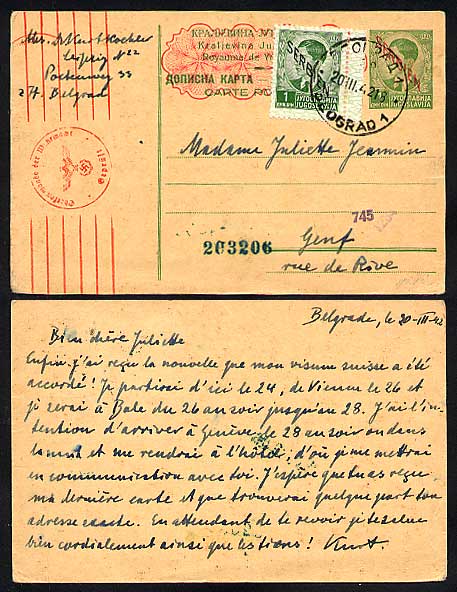 Abs. Dr Kurt Koehler
Leipzig N22
z. Zt. Belgrad
КРАЉЕВИНА
Kraljevina Ju
Royaume de Y
ДОПИСНА КАРТА
CARTE PO
SERBIEN
SERBIEN
1
ЈУГОСЛАВИЈА
JUGOSLAVIJA
20.III.42
BEOGRAD 1
Madame Juliette Jeannin
745
203206
Genf
rue de Rive
Belgrade, le 20-III-42
Bien chère Juliette
Enfin j'ai reçu la nouvelle que mon visum suisse a été
accordé! Je partirai d'ici le 24, de Vienne le 26 et
je serai à Bâle du 26 au soir jusqu'au 28. J'ai l'in-
tention d'arriver à Genève le 28 au soir ou dans
la nuit et me rendrai à l'hôtel, d'où je me mettrai
en communication avec toi. J'espère que tu as reçu
ma dernière carte et que trouverai quelque part ton
adresse exacte. En attendant de te revoir je te salue
bien cordialement ainsi que les tiens! Kurt.